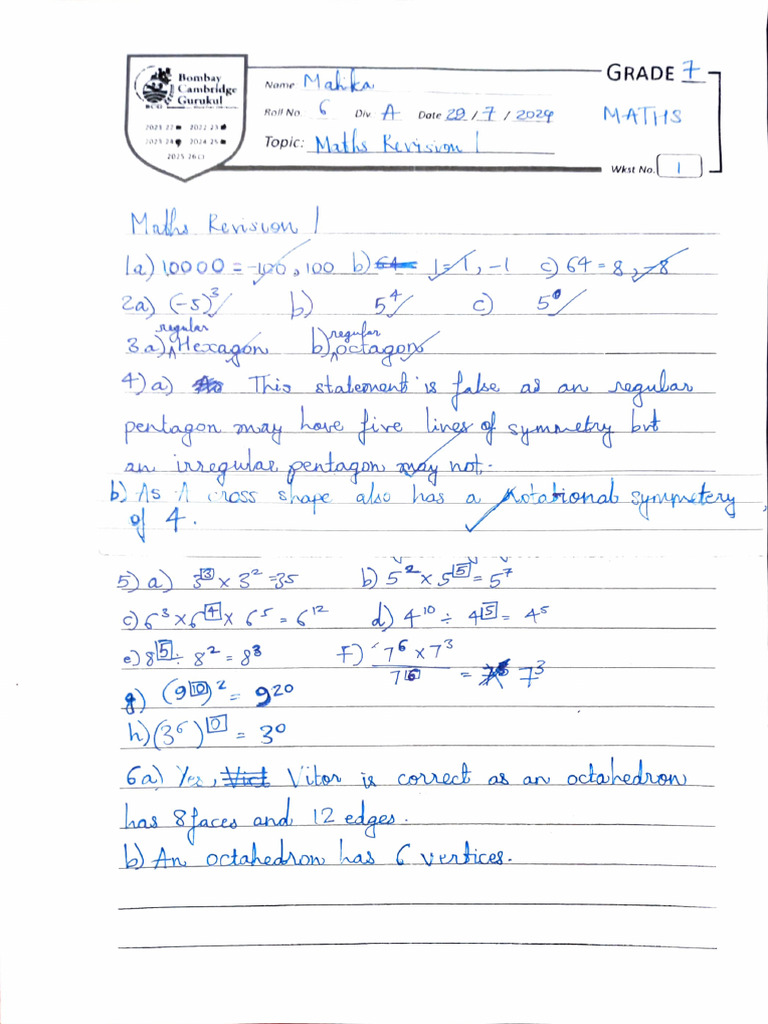 Bombay
Cambridge
Gurukul
2021-22 2022-23
2023-24 2024-25
2025-26
Name Mahika
GRADE 7
Roll No. 6 Div. A Date 29 / 7 / 2024
MATHS
Topic: Maths Revision 1
Wkst No. 1
Maths Revision 1
1a) 10000 = -100, 100 b) 1 = 1, -1 c) 64 = 8, -8
2a) (-5)³ b) 5⁴ c) 5⁰
regular regular
3a) ^ Hexagon b) ^ octagon
4) a) This statement is false as an regular
pentagon may have five lines of symmetry but
an irregular pentagon may not.
b) As A cross shape also has a rotational symmetery
of 4.
5) a) 3³ x 3² = 35 b) 5² x 5⁵ = 5⁷
c) 6³ x 6⁴ x 6⁵ = 6¹² d) 4¹⁰ ÷ 4⁵ = 4⁵
e) 8⁵ ÷ 8² = 8³ F) 7⁶ x 7³
7⁶ = 7³
g) (9¹⁰)² = 9²⁰
h) (3⁶)⁰ = 3⁰
6a) Yes, Vitor is correct as an octahedron
has 8 faces and 12 edges.
b) An octahedron has 6 vertices.